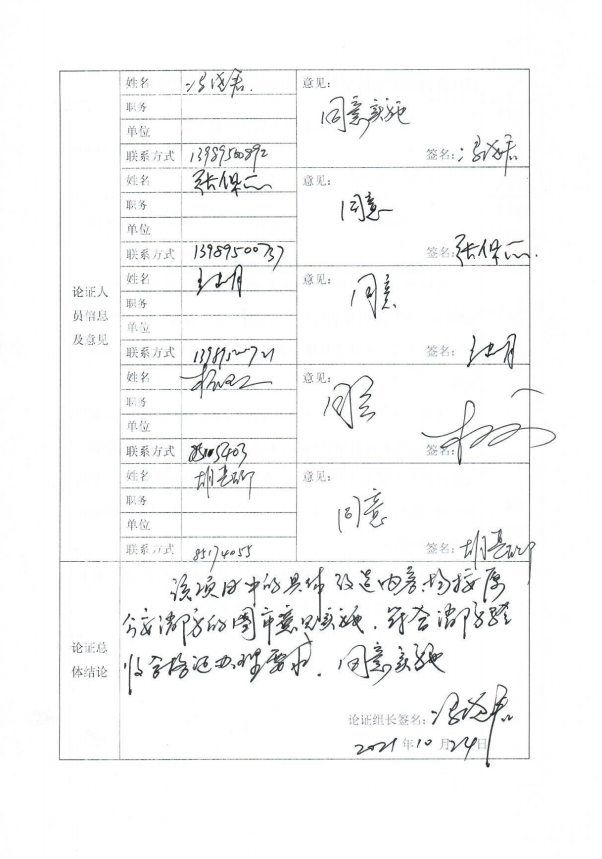 姓名
职务
单位
联系方式 13989500892
意见:
同意实施
签名:
姓名 张保
职务
单位
联系方式 13989500737
意见:
同意
签名: 张保
论证人
员信息
及意见
姓名
职务
单位
联系方式
意见:
同意
签名:
姓名
职务
单位
联系方式
意见:
同意
签名:
姓名 胡
职务
单位
联系方式 85174055
意见:
同意
签名: 胡
论证总
体结论
该项目中的具体改造内容均按原
公安消防的图审意见实施,符合消防验
收合格证办理要求,同意实施
论证组长签名:
2021年10月24日